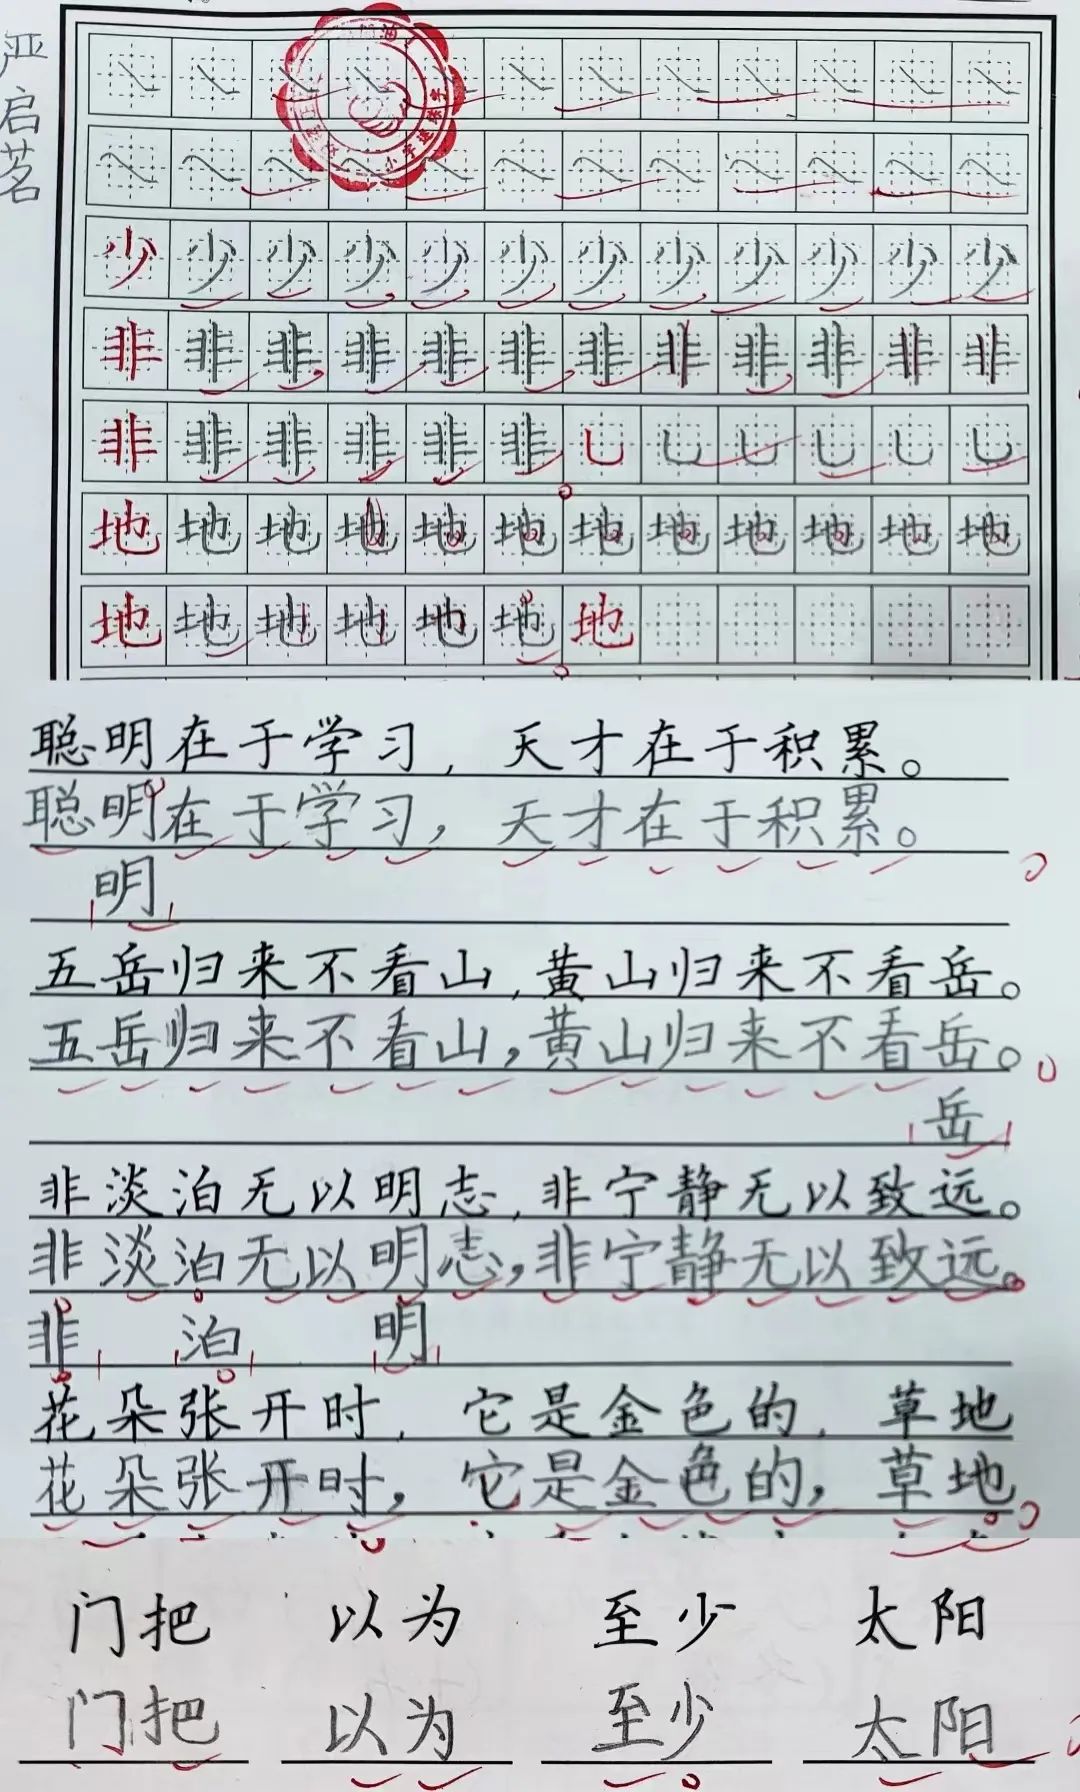 严启茗
少少少少少少少少少少少少
非非非非非非非非非非非非
非非非非非非乚乚乚乚乚乚
地地地地地地地地地地地地
地地地地地地地
聪明在于学习，天才在于积累。
聪明在于学习，天才在于积累。
明
五岳归来不看山，黄山归来不看岳。
五岳归来不看山，黄山归来不看岳。
岳
非淡泊无以明志，非宁静无以致远。
非淡泊无以明志，非宁静无以致远。
非 泊 明
花朵张开时，它是金色的，草地
花朵张开时，它是金色的，草地
门把 以为 至少 太阳
门把 以为 至少 太阳